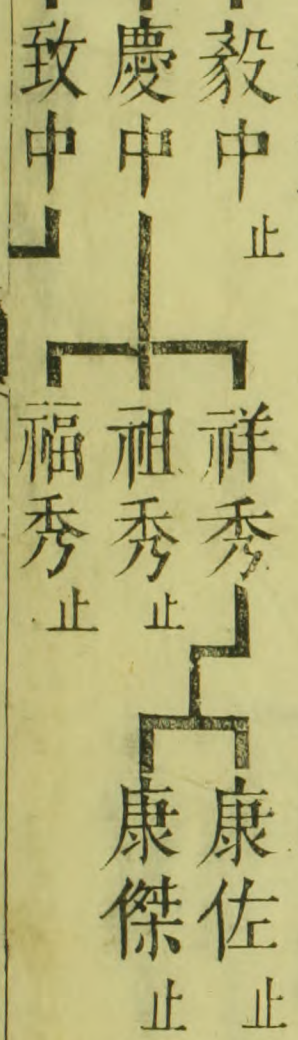 毅中止
慶中
致中
祥秀
祖秀止
福秀止
康佐止
康傑止